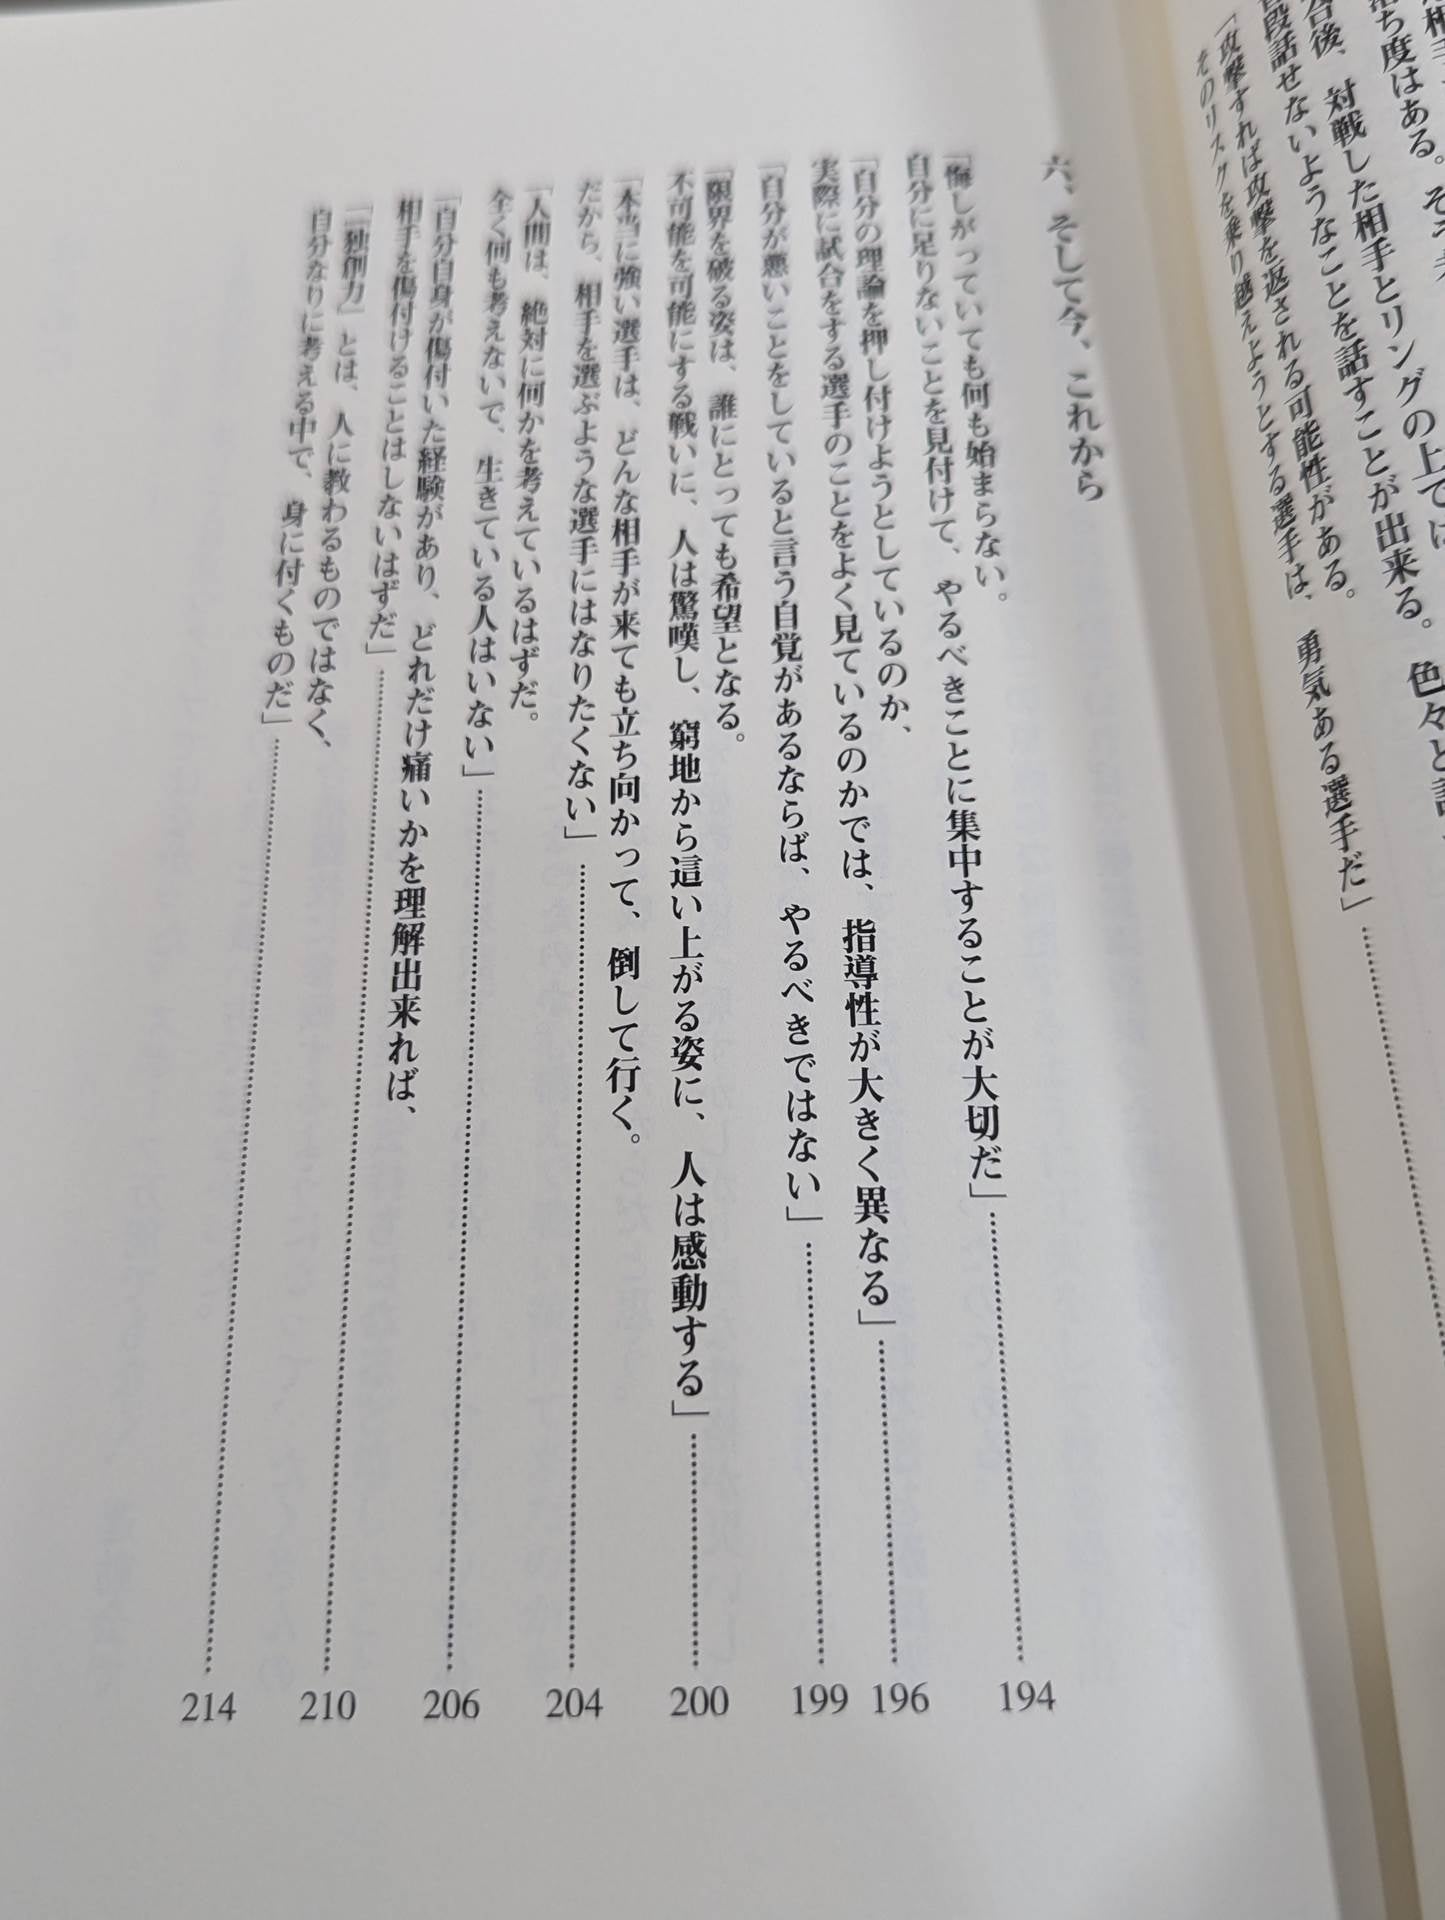 落ち度はある。
合後、対戦した相手とリングの上では
普段話せないようなことを話すことが出来る。色々と
「攻撃すれば攻撃を返される可能性がある。
そのリスクを乗り越えようとする選手は、勇気ある選手だ」
六、そして今、これから
「悔しがっていても何も始まらない。
自分に足りないことを見付けて、やるべきことに集中することが大切だ」 194
「自分の理論を押し付けようとしているのか、
実際に試合をする選手のことをよく見ているのかでは、指導性が大きく異なる」 196
「自分が悪いことをしていると言う自覚があるならば、やるべきではない」 199
「限界を破る姿は、誰にとっても希望となる。
不可能を可能にする戦いに、人は驚嘆し、窮地から這い上がる姿に、人は感動する」 200
「本当に強い選手は、どんな相手が来ても立ち向かって、倒して行く。
だから、相手を選ぶような選手にはなりたくない」 204
「人間は、絶対に何かを考えているはずだ。
全く何も考えないで、生きている人はいない」 206
「自分自身が傷付いた経験があり、どれだけ痛いかを理解出来れば、
相手を傷付けることはしないはずだ」 210
「「独創力」とは、人に教わるものではなく、
自分なりに考える中で、身に付くものだ」 214